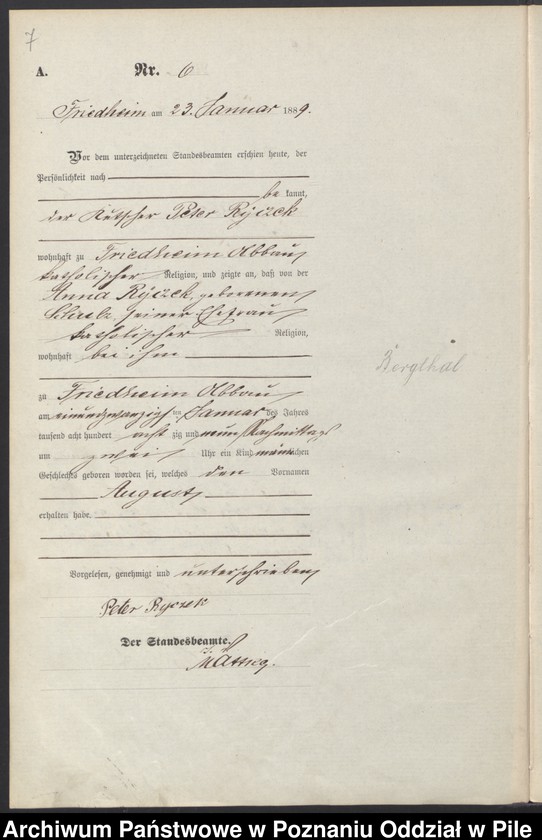 7
A. Nr. 6
Friedheim am 23. Januar 1889.
Vor dem unterzeichneten Standesbeamten erschien heute, der
Persönlichkeit nach
be kannt,
der Kutscher Peter Ryczek
wohnhaft zu Friedheim Abbau
katholischer Religion, und zeigte an, daß von der
Anna Ryczek, geborenen
Schulz, seiner Ehefrau
katholischer Religion,
wohnhaft bei ihm
zu Friedheim Abbau
am einundzwanzigsten Januar des Jahres
tausend acht hundert acht zig und neun Nachmittags
um zwei Uhr ein Kind männlichen
Geschlechts geboren worden sei, welches den Vornamen
August
erhalten habe.
Vorgelesen, genehmigt und unterschrieben
Peter Ryczek
Der Standesbeamte.
Bergthal
Archiwum Państwowe w Poznaniu Oddział w Pile